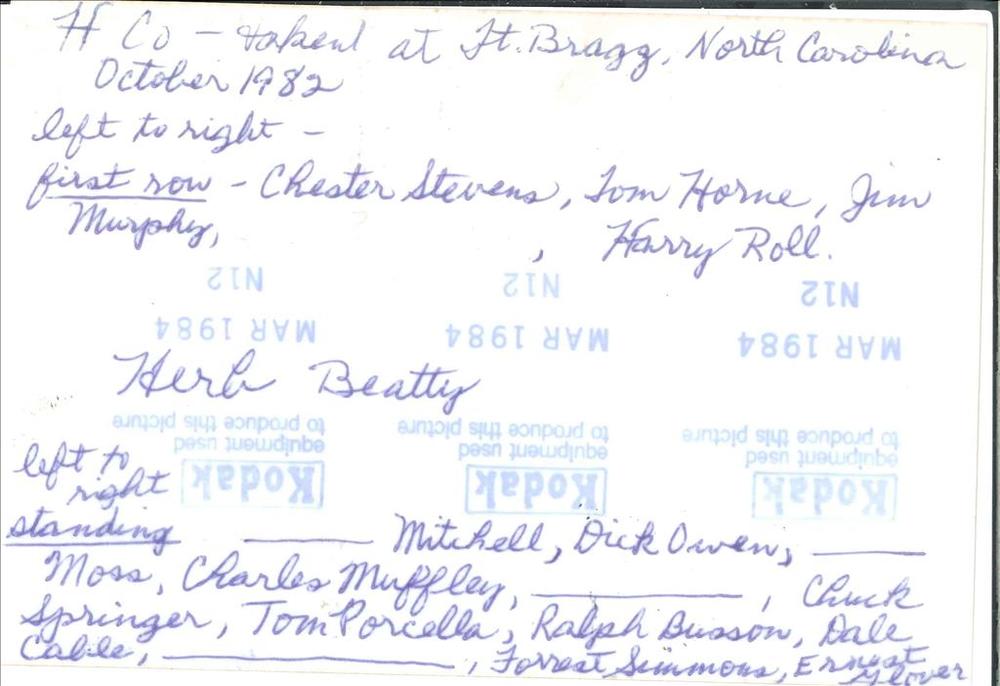 H Co - taken at Ft. Bragg, North Carolina
October 1982
left to right -
first row - Chester Stevens, Tom Horne, Jim
Murphy, , Harry Roll.
N12 N12 N12
MAR 1984 MAR 1984 MAR 1984
Herb Beatty
to produce this picture to produce this picture to produce this picture
equipment used equipment used equipment used
Kodak Kodak Kodak
left to
right
standing ______ Mitchell, Dick Owen, ______
Moss, Charles Muffley, ______, Chuck
Springer, Tom Porcella, Ralph Busson, Dale
Cable, ______, Forrest Simmons, Ernest
Glover